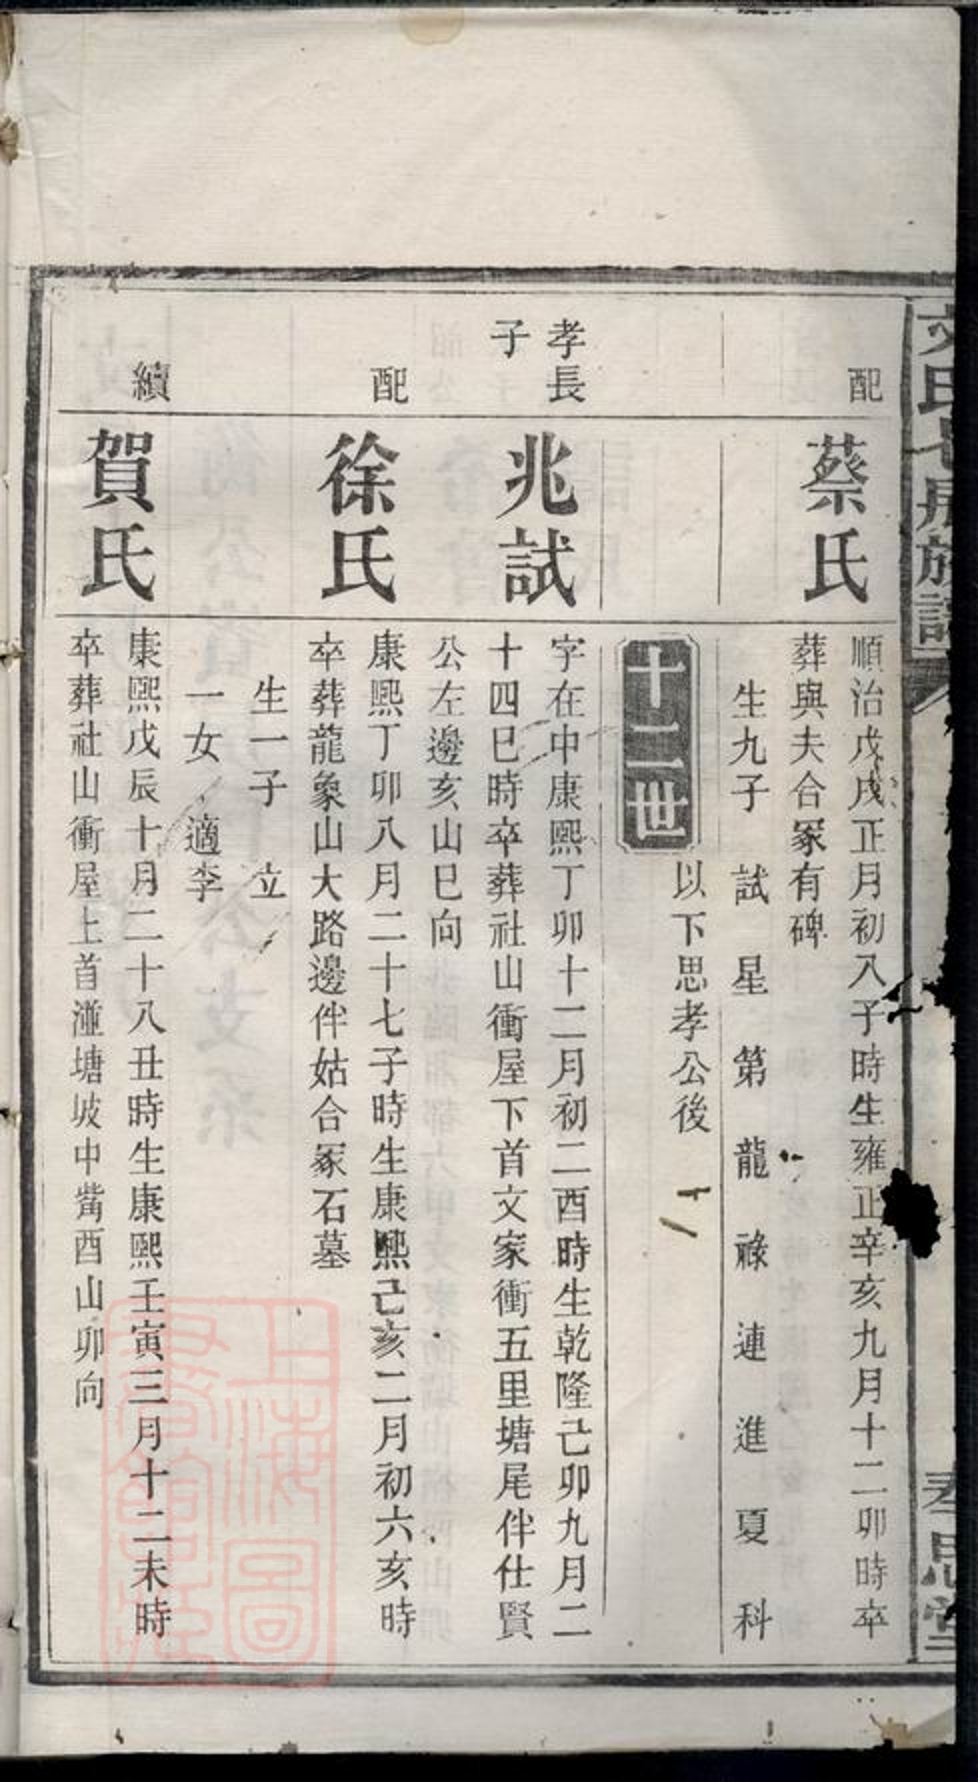 文氏七房族譜
孝思堂
配
蔡氏
順治戊戌正月初八子時生雍正辛亥九月十二卯時卒
葬與夫合冢有碑
生九子 試 星 第 龍 祿 連 進 夏 科
以下思孝公後
十二世
孝長
子
兆試
字在中康熙丁卯十二月初二酉時生乾隆己卯九月二
十四巳時卒葬社山衝屋下首文家衝五里塘尾伴仕賢
公左邊亥山巳向
配
徐氏
康熙丁卯八月二十七子時生康熙己亥二月初六亥時
卒葬龍象山大路邊伴姑合冢石墓
生一子 立
一女 適李
續
賀氏
康熙戊辰十月二十八丑時生康熙壬寅三月十二未時
卒葬社山衝屋上首漨塘坡中觜酉山卯向
上海圖
書館藏